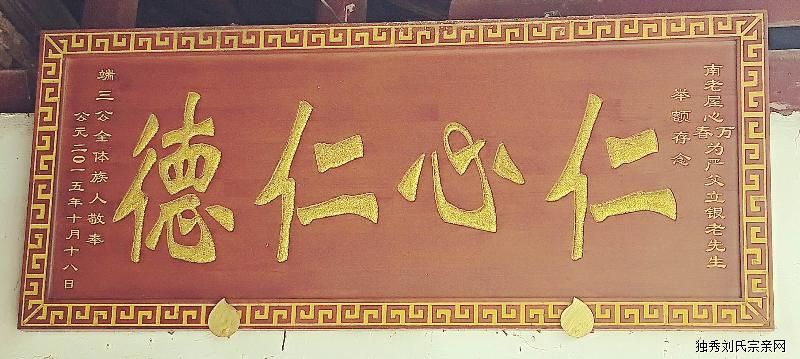 南老屋心万春为严父立银老先生
举颤存念
仁心仁德
端三公全体族人敬奉
公元二〇一五年十月十八日
独秀刘氏宗亲网